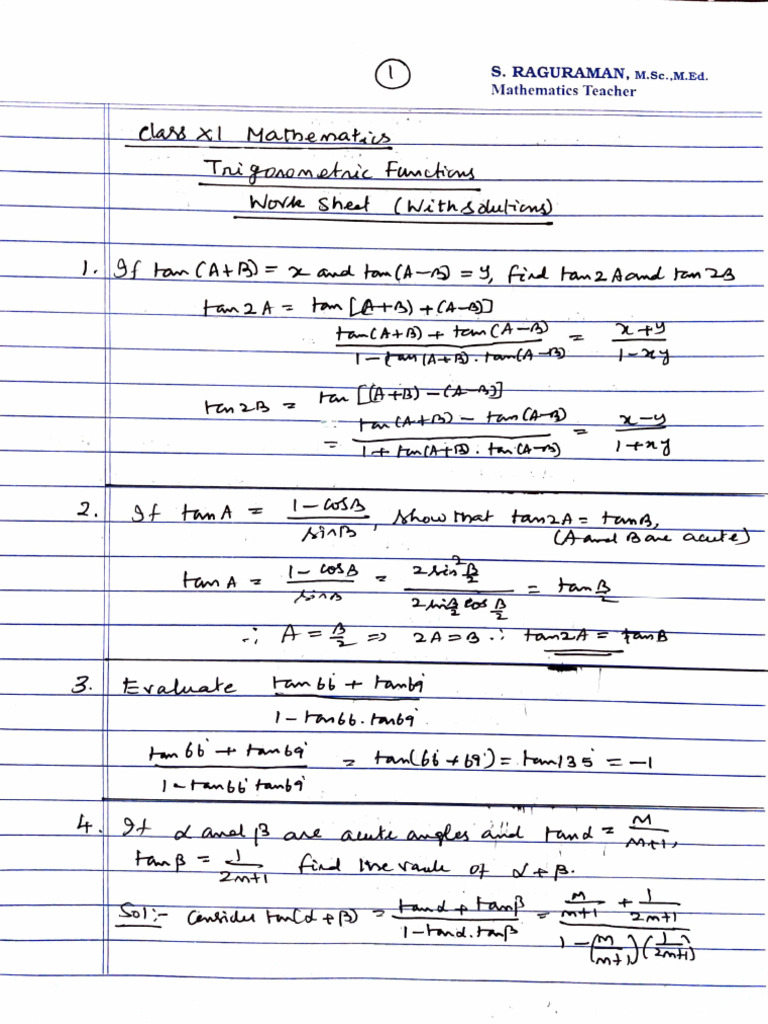 1
S. RAGURAMAN, M.Sc.,M.Ed.
Mathematics Teacher
Class XI Mathematics
Trigonometric Functions
Work Sheet (With solutions)
1. If tan(A+B) = x and tan(A-B) = y, find tan2A and tan 2B
tan2A = tan[(A+B) + (A-B)]
tan(A+B) + tan(A-B) / 1 - tan(A+B). tan(A-B) = x+y / 1-xy
tan2B = tan[(A+B) - (A-B)]
= tan(A+B) - tan(A-B) / 1 + tan(A+B). tan(A-B) = x-y / 1+xy
2. If tanA = 1-cosB / sinB, show that tan2A = tanB,
(A and B are acute)
tanA = 1-cosB / sinB = 2sin² B/2 / 2sin B/2 cos B/2 = tan B/2
∴ A = B/2 => 2A = B ∴ tan2A = tanB
3. Evaluate tan66° + tan69° / 1 - tan66. tan69°
tan66° + tan69° / 1 - tan66° tan69° = tan(66° + 69°) = tan135° = -1
4. If α and β are acute angles and tanα = m / m+1,
tanβ = 1 / 2m+1 find the value of α+β.
Sol:- Consider tan(α+β) = tanα + tanβ / 1 - tanα. tanβ = m/m+1 + 1/2m+1 / 1 - (m/m+1)(1/2m+1)